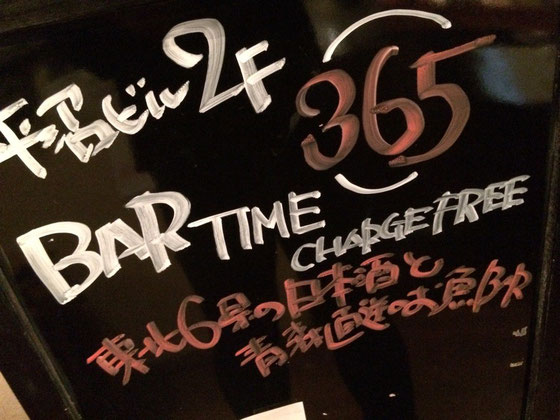 平沼ビル2F
365
BAR TIME
CHARGE FREE
東北6県の日本酒と
青森直送のお魚BAR